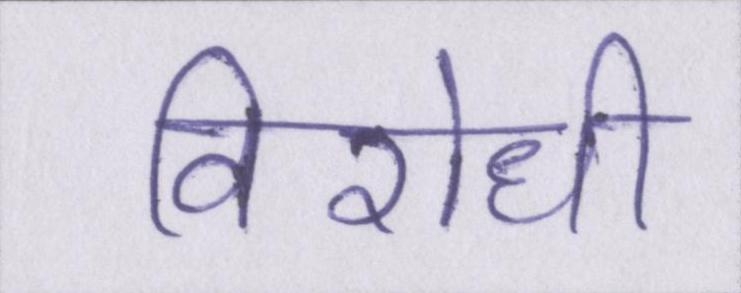 विरोधी